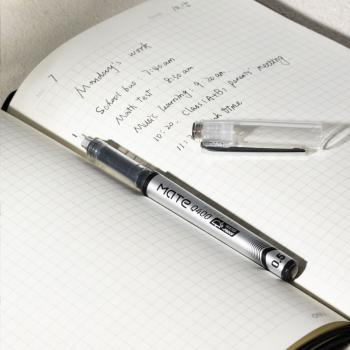 7
Monday's work
School bus 7:40 am
Math test 8:20 am
Music learning: 9:20 am
10:20 Class 1(A+B) parents' meeting
time
MATE Q400
0.5